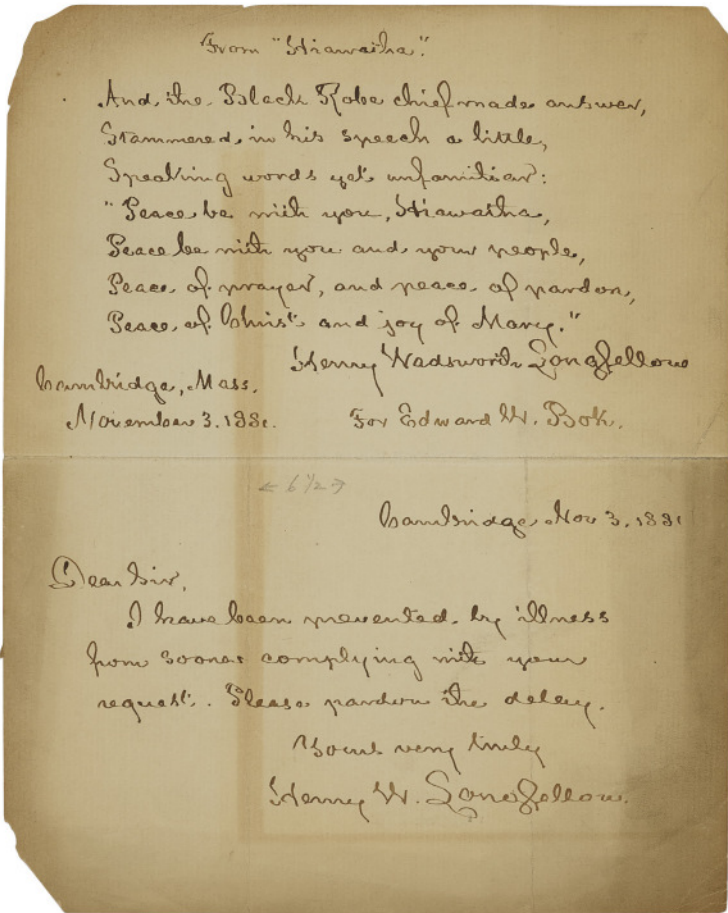 From "Hiawatha".
And the Black Robe chief made answer,
Stammered in his speech a little,
Speaking words yet unfamiliar:
"Peace be with you, Hiawatha,
Peace be with you and your people,
Peace of prayer, and peace of pardon,
Peace of Christ and joy of Mary."
Henry Wadsworth Longfellow
Cambridge, Mass.
November 3. 1881.
For Edward W. Bok.
← 6 1/2 →
Cambridge, Nov 3. 1881
Dear Sir,
I have been prevented by illness
from sooner complying with your
request. Please pardon the delay.
Yours very truly
Henry W. Longfellow.